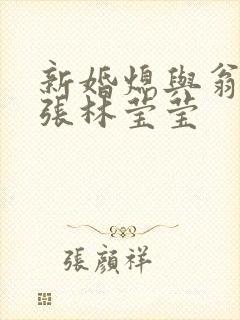 新婚媳與翁
張林莹莹
張顏祥